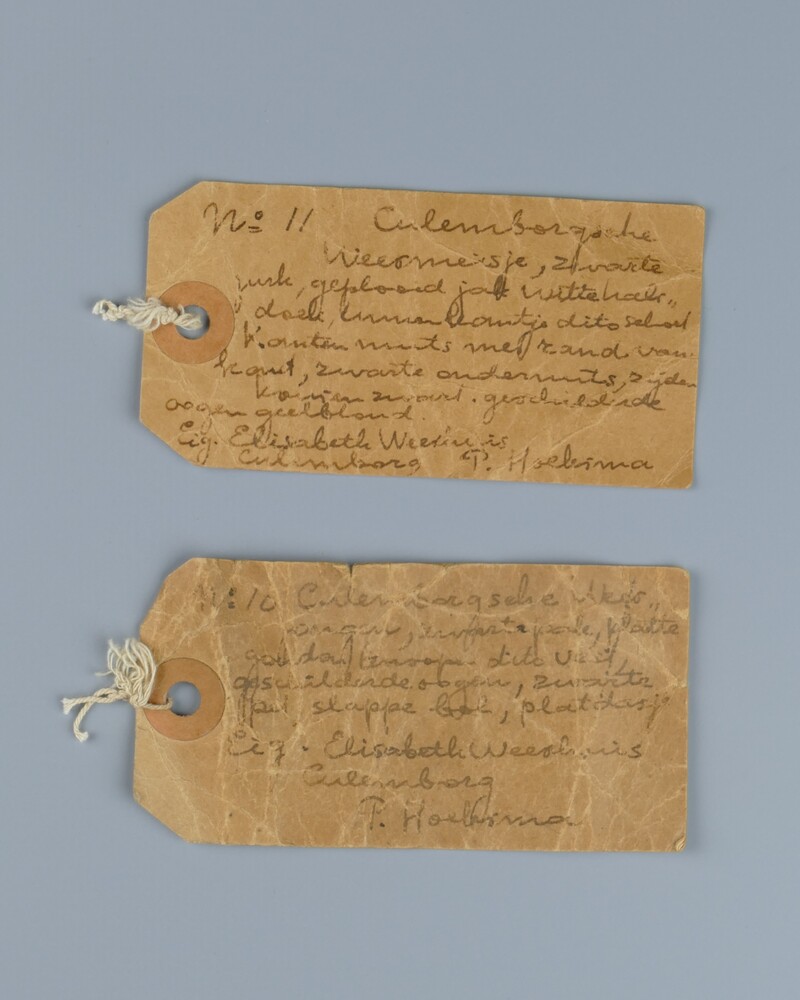 No 11 Culemborgsche
Weesmeisje, zwarte
jurk, geplooid jak witte hals„
doek,
Kanten muts met rand van
zwarte ondermuts, zijden
zwart. geschilderde
oogen geelblond.
Eig. Elisabeth Weeshuis
Culemborg P. Hoeksma
No 10 Culemborgsche Wees„
jongen, platte
gouden knoopen dito vest,
geschilderde oogen, zwarte
pet, slappe bol,
Eig. Elisabeth Weeshuis
Culemborg
P. Hoeksma